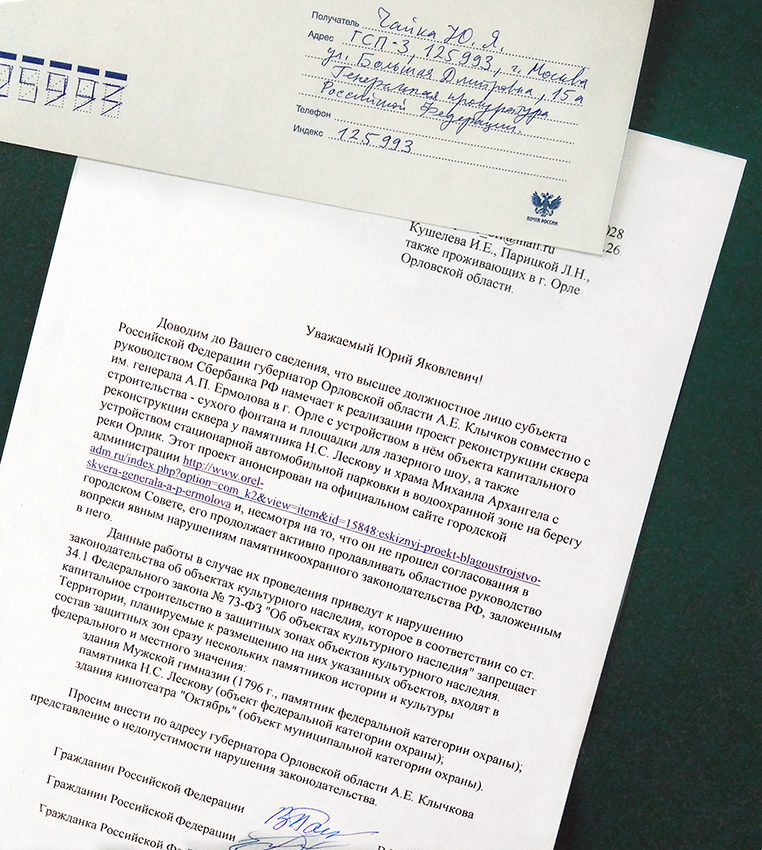 Получатель Чайка Ю. Я.
Адрес ГСП-3, 125993, г. Москва
ул. Большая Дмитровка, 15а
Генеральная прокуратура
Российской Федерации.
Телефон
Индекс 125993
25993
ПОЧТА РОССИИ
028
@mail.ru 26
Кушелева И.Е., Парицкой Л.Н.,
также проживающих в г. Орле
Орловской области.
Уважаемый Юрий Яковлевич!
Доводим до Вашего сведения, что высшее должностное лицо субъекта
Российской Федерации губернатор Орловской области А.Е. Клычков совместно с
руководством Сбербанка РФ намечает к реализации проект реконструкции сквера
им. генерала А.П. Ермолова в г. Орле с устройством в нём объекта капитального
строительства - сухого фонтана и площадки для лазерного шоу, а также
реконструкции сквера у памятника Н.С. Лескову и храма Михаила Архангела с
устройством стационарной автомобильной парковки в водоохранной зоне на берегу
реки Орлик. Этот проект анонсирован на официальном сайте городской
администрации http://www.orel-
adm.ru/index.php?option=com_k2&view=item&id=15848:eskiznyj-proekt-blagoustrojstvo-
skvera-generala-a-p-ermolova и, несмотря на то, что он не прошел согласования в
городском Совете, его продолжает активно продавливать областное руководство
вопреки явным нарушениям памятникоохранного законодательства РФ, заложенным
в него.
Данные работы в случае их проведения приведут к нарушению
законодательства об объектах культурного наследия, которое в соответствии со ст.
34.1 Федерального закона № 73-ФЗ "Об объектах культурного наследия" запрещает
капитальное строительство в защитных зонах объектов культурного наследия.
Территории, планируемые к размещению на них указанных объектов, входят в
состав защитных зон сразу нескольких памятников истории и культуры
федерального и местного значения:
здания Мужской гимназии (1796 г., памятник федеральной категории охраны);
памятника Н.С. Лескову (объект федеральной категории охраны);
здания кинотеатра "Октябрь" (объект муниципальной категории охраны).
Просим внести по адресу губернатора Орловской области А.Е. Клычкова
представление о недопустимости нарушения законодательства.
Гражданин Российской Федерации
Гражданин Российской Федерации
Гражданка Российской